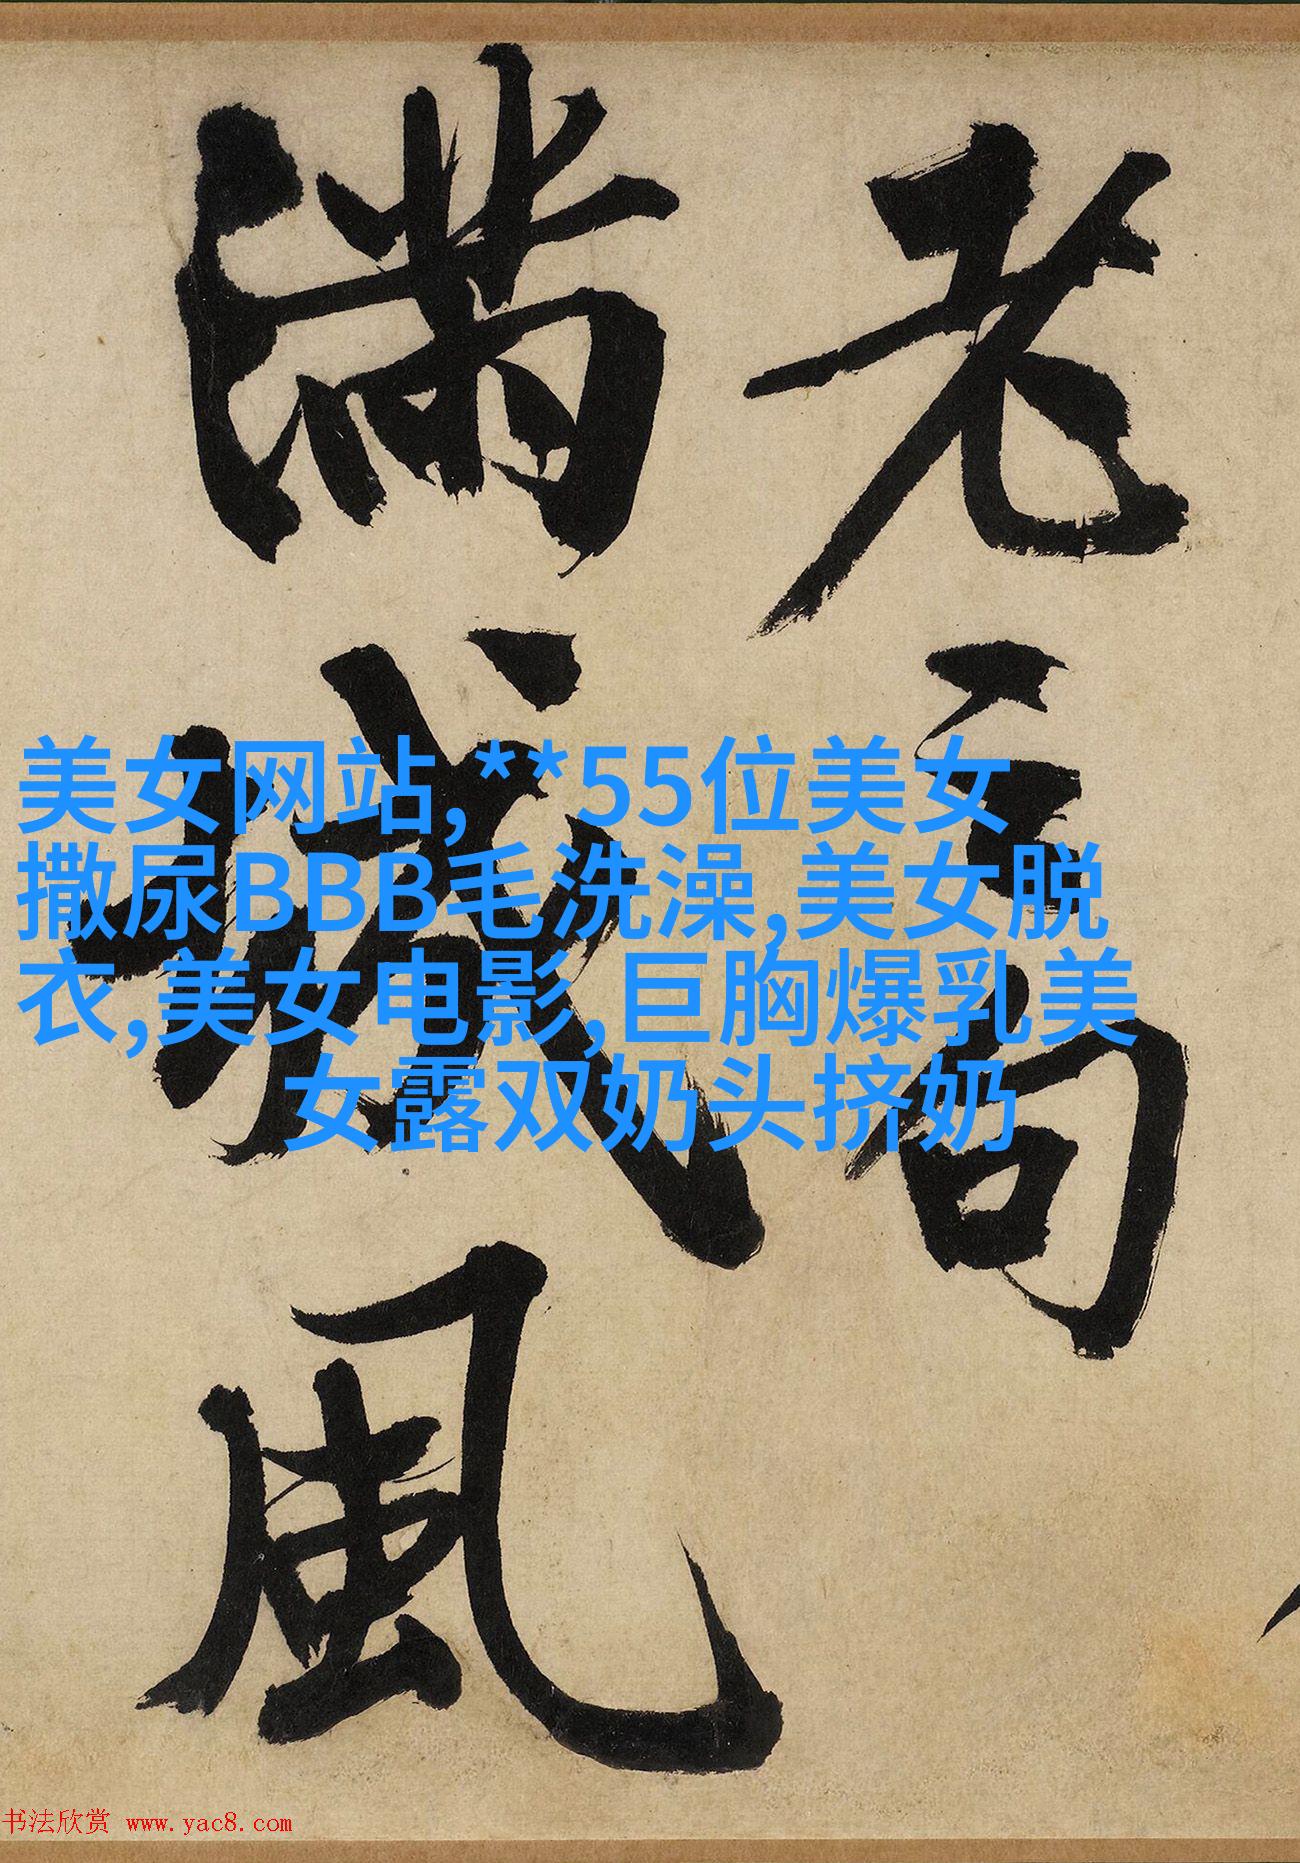 老言句
满城風
美女网站,**55位美女
撒尿BBB毛洗澡,美女脱
衣,美女电影,巨胸爆乳美
女露双奶头挤奶
书法欣赏 www.yac8.com